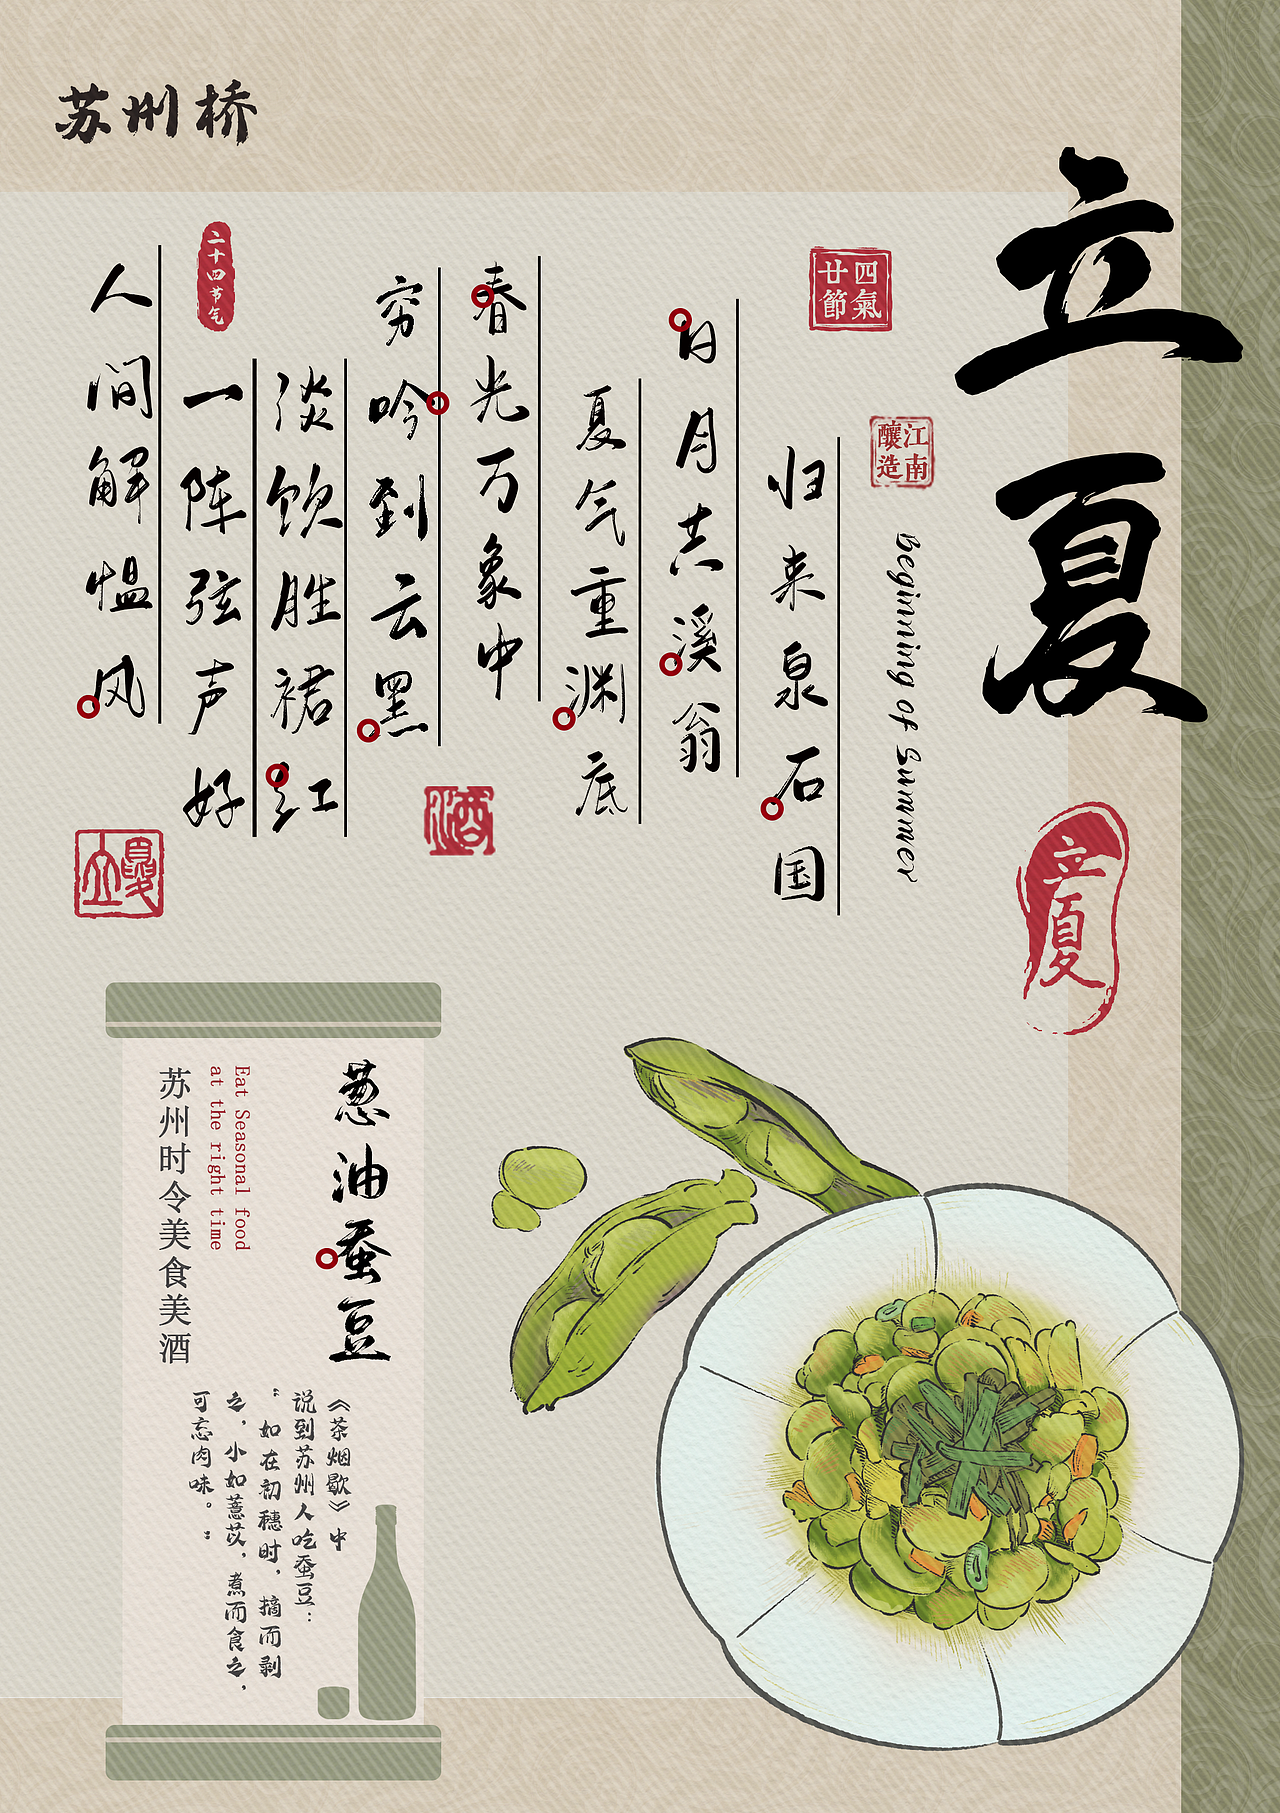 苏州桥
立夏
四氣
廿節
江南
釀造
Beginning of Summer
立夏
归来泉石国
日月共溪翁
夏气重渊底
春光万象中
穷吟到云黑
淡饮胜裙红
一阵弦声好
人间解愠风
二十四节气
酒
立夏
葱油蚕豆
Eat Seasonal food
at the right time
苏州时令美食美酒
《茶烟歇》中
说到苏州人吃蚕豆：
“如在初穗时，摘而剥
之，小如薏苡，煮而食之，
可忘肉味。”